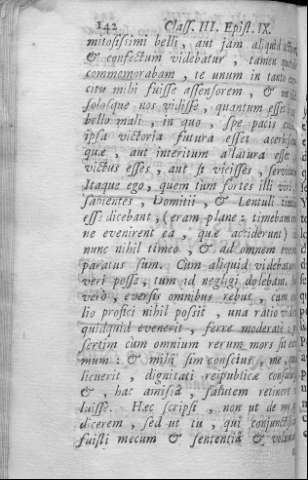 142 Class. III. Epist. IX.
mitosissimi belli, aut jam aliquid
& confectum videbatur, tamen
commemorabam, te unum in tanto
citu mihi fuisse assensorem, &
solosque nos vidisse, quantum esset
bello mali, in quo, spe pacis
ipsa victoria futura esset
quæ, aut interitum allatura esset
victus esses, aut si vicisses,
Itaque ego, quem tum fortes illi viri
sapientes, Domitii, & Lentuli
esse dicebant, (eram plane: timebam
ne evenirent ea, quæ acciderunt)
nunc nihil timeo, & ad omnem
paratus sum. Cum aliquid videbatur
veri posse, tum id negligi dolebam.
vero, eversis omnibus rebus, cum
lio profici nihil possit, una ratio
quidquid evenerit, ferre moderate
sertim cum omnium rerum mors sit
mum: & mihi sim conscius, me,
licuerit, dignitati reipublicæ
&, hac amissa, salutem retinere
luisse. Hæc scripsi, non ut de me
dicerem, sed ut tu, qui conjunctis
fuisti mecum & sententia &